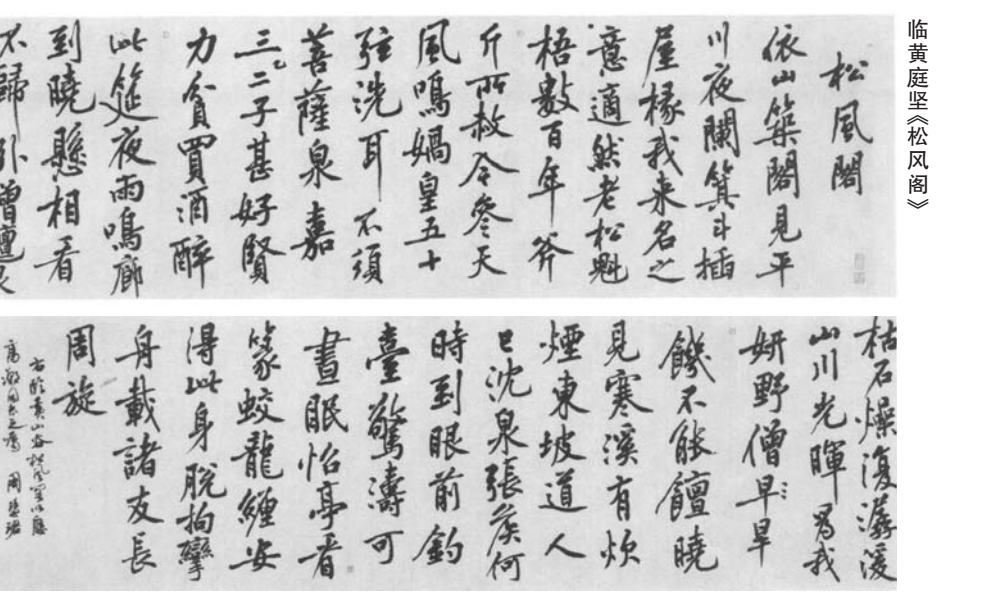 临黄庭坚《松风阁》
松風閣
依山築閣見平
川夜闌箕斗插
屋椽我来名之
意適然老松魁
梧數百年斧
斤所赦今參天
風鳴媧皇五十
弦洗耳不須
菩薩泉嘉
三二子甚好賢
力貧買酒醉
此筵夜雨鳴廊
到曉懸相看
不歸卧僧氈泉
枯石燥復潺湲
山川光暉爲我
妍野僧早旱
饑不能饘曉
見寒溪有炊
煙東坡道人
已沈泉張侯何
時到眼前釣
臺驚濤可
晝眠怡亭看
篆蛟龍纏安
得此身脱拘攣
舟載諸友長
周旋
右臨黄山谷松風閣以應
同志之屬 周慧珺